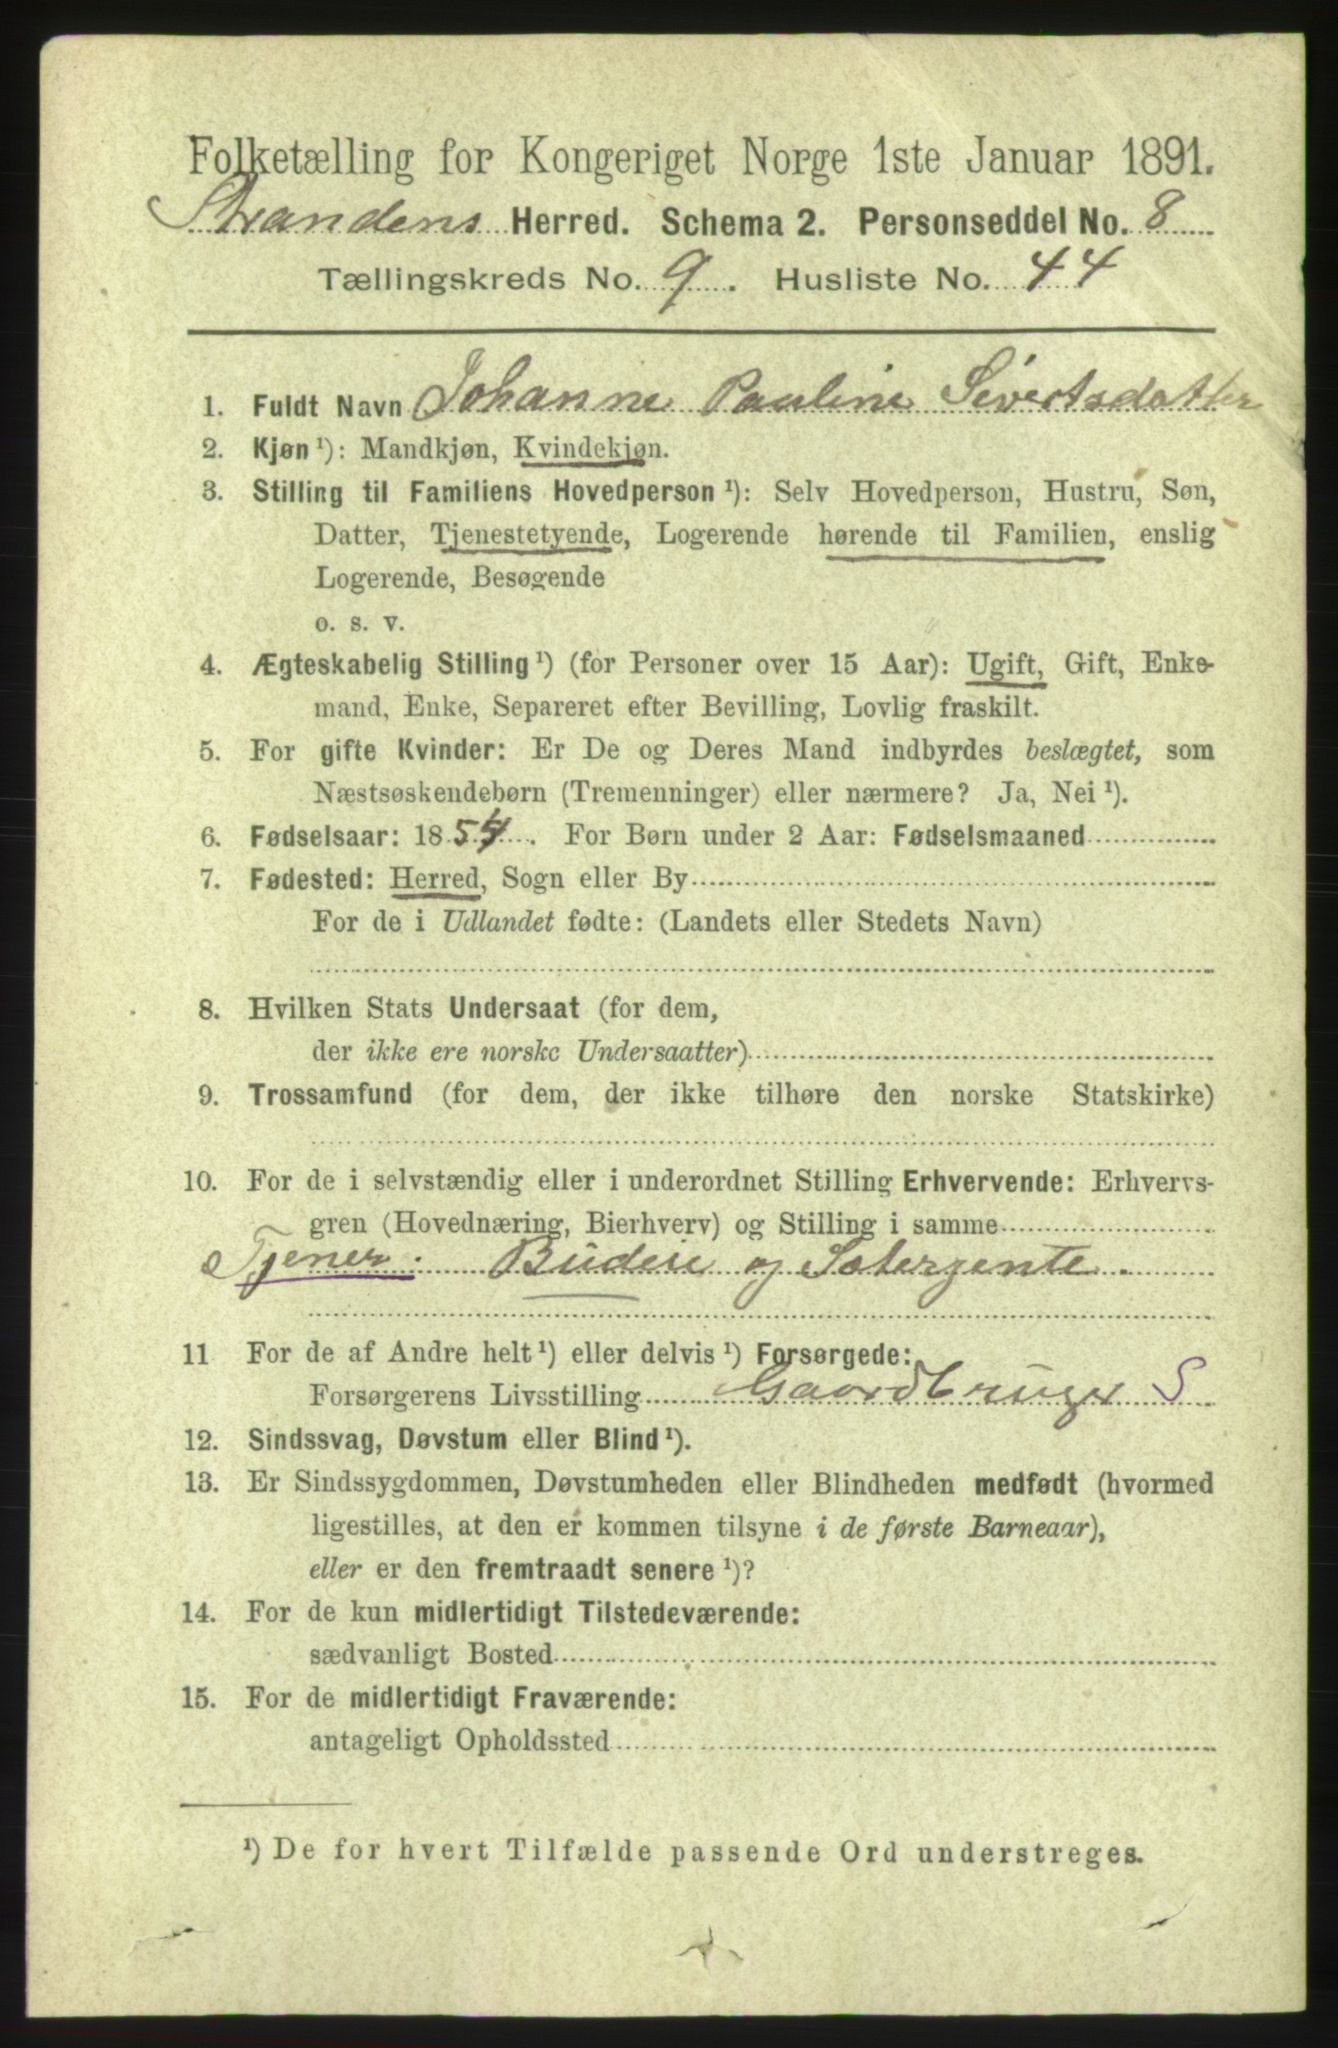 Folketælling for Kongeriget Norge 1ste Januar 1891.
Strandens Herred. Schema 2. Personseddel No. 8
Tællingskreds No. 9. Husliste No. 44
1. Fuldt Navn Johanne Pauline Sivertsdatter
2. Kjøn ¹): Mandkjøn, Kvindekjøn.
3. Stilling til Familiens Hovedperson ¹): Selv Hovedperson, Hustru, Søn,
Datter, Tjenestetyende, Logerende hørende til Familien, enslig
Logerende, Besøgende
o. s. v.
4. Ægteskabelig Stilling ¹) (for Personer over 15 Aar): Ugift, Gift, Enke-
mand, Enke, Separeret efter Bevilling, Lovlig fraskilt.
5. For gifte Kvinder: Er De og Deres Mand indbyrdes beslægtet, som
Næstsøskendebørn (Tremenninger) eller nærmere? Ja, Nei ¹).
6. Fødselsaar: 1854. For Børn under 2 Aar: Fødselsmaaned
7. Fødested: Herred, Sogn eller By
For de i Udlandet fødte: (Landets eller Stedets Navn)
8. Hvilken Stats Undersaat (for dem,
der ikke ere norske Undersaatter)
9. Trossamfund (for dem, der ikke tilhøre den norske Statskirke)
10. For de i selvstændig eller i underordnet Stilling Erhvervende: Erhvervs-
gren (Hovednæring, Bierhverv) og Stilling i samme
Tjener. Budeie og Sæterjente.
11 For de af Andre helt ¹) eller delvis ¹) Forsørgede:
Forsørgerens Livsstilling Gaardbruger S
12. Sindssvag, Døvstum eller Blind ¹).
13. Er Sindssygdommen, Døvstumheden eller Blindheden medfødt (hvormed
ligestilles, at den er kommen tilsyne i de første Barneaar),
eller er den fremtraadt senere ¹)?
14. For de kun midlertidigt Tilstedeværende:
sædvanligt Bosted
15. For de midlertidigt Fraværende:
antageligt Opholdssted
¹) De for hvert Tilfælde passende Ord understreges.